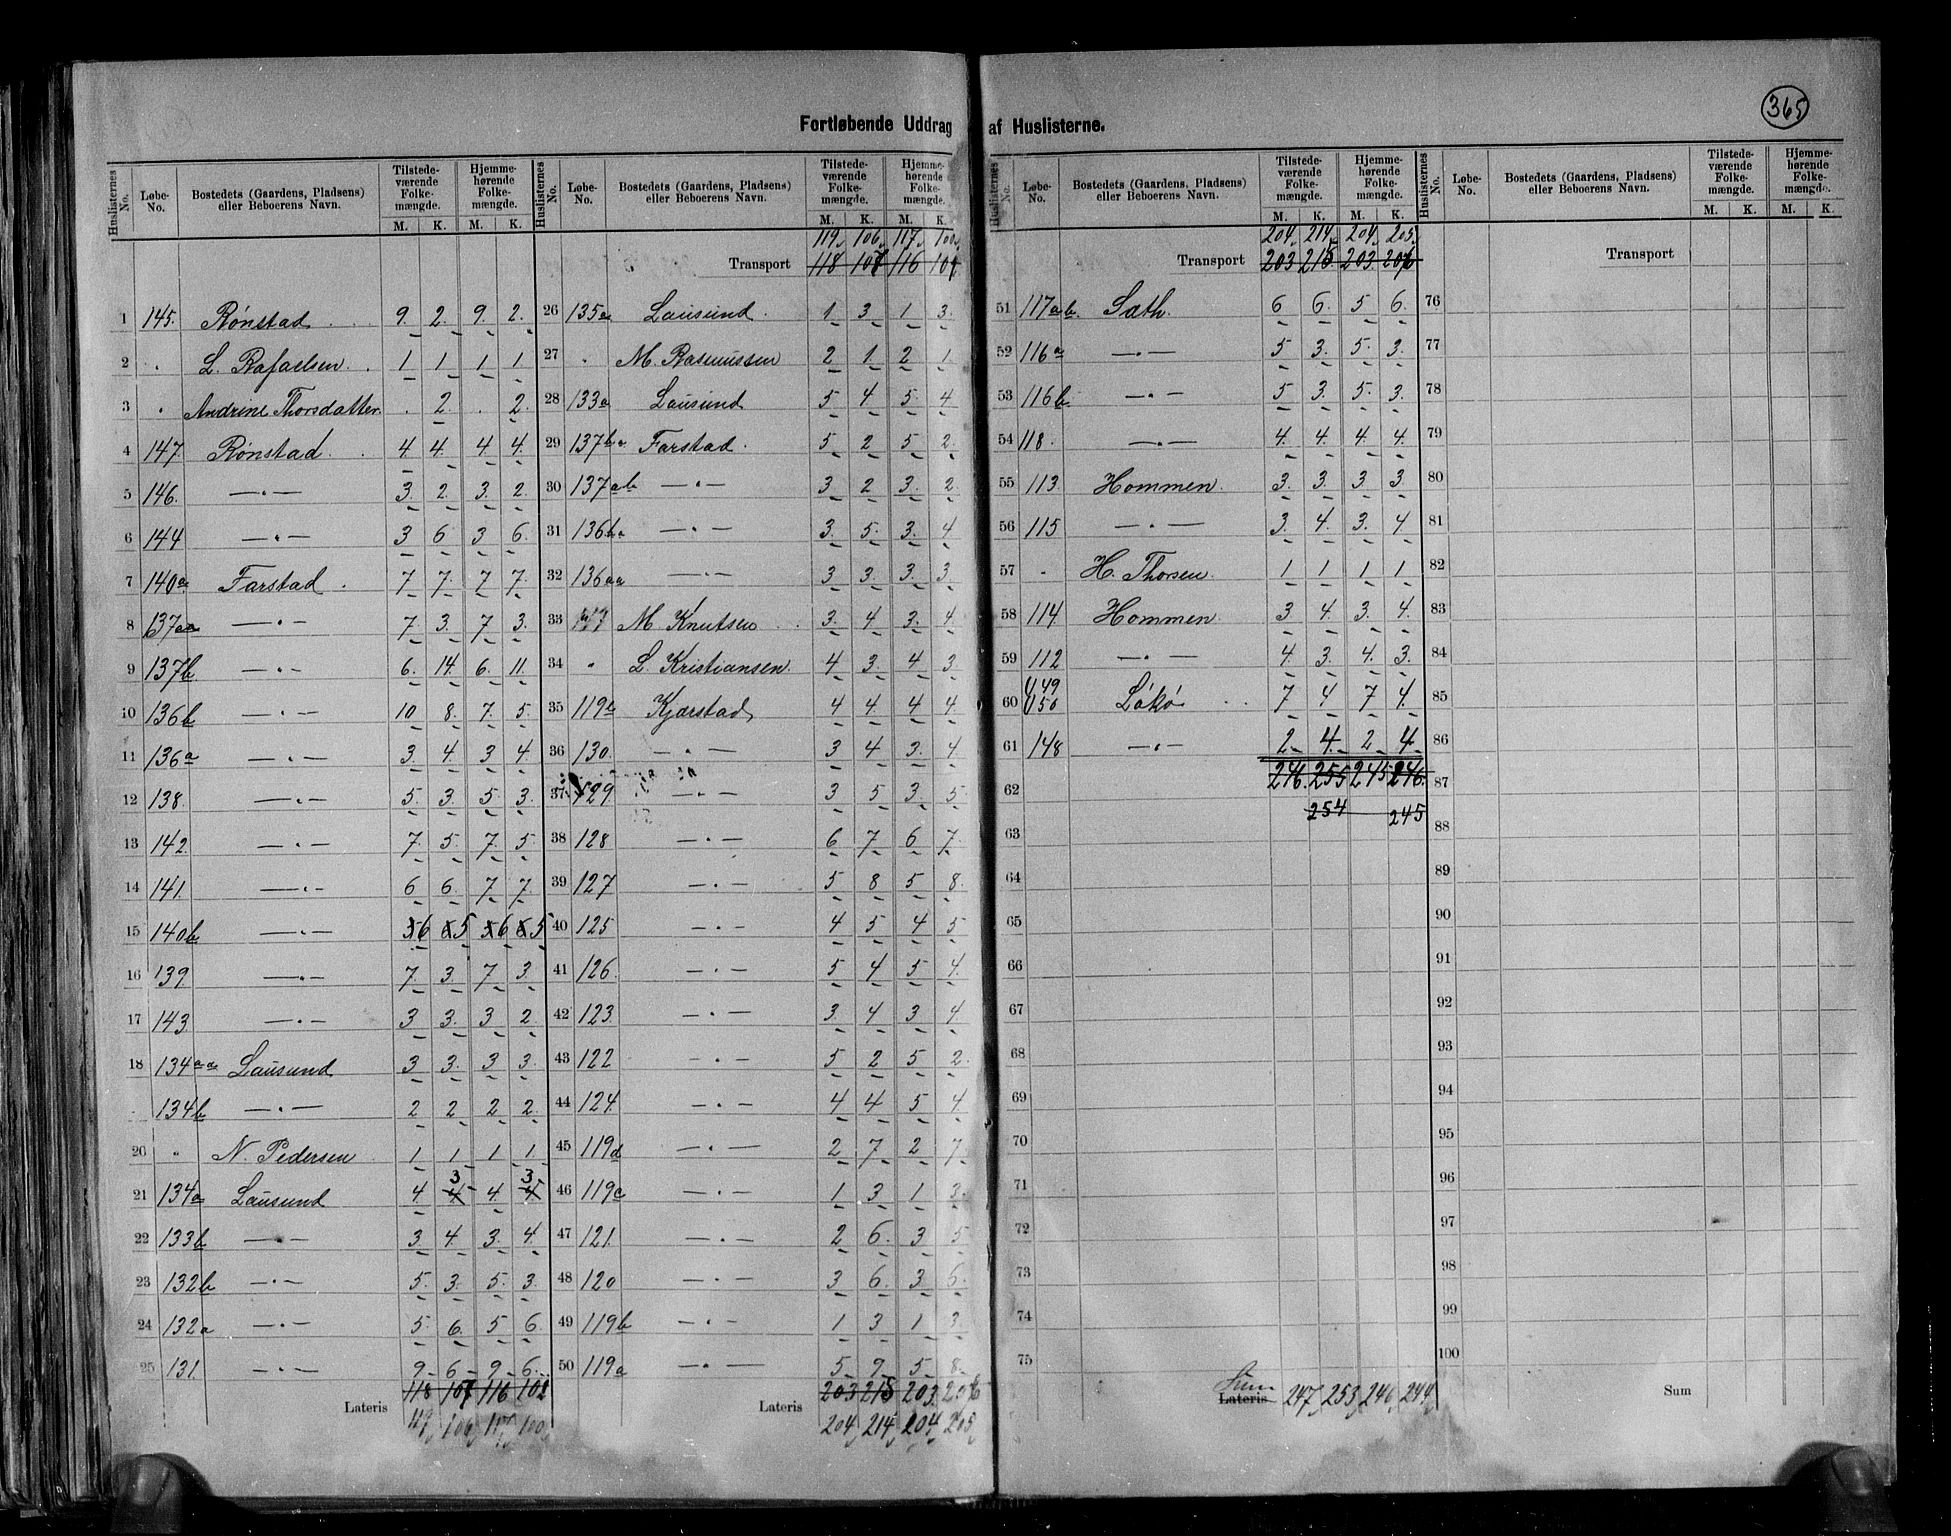 365
Fortløbende Uddrag af Huslisterne.
Huslisternes No. Løbe-No. Bostedets (Gaardens, Pladsens) eller Beboerens Navn. Tilstedeværende Folkemængde. M. K. Hjemmehørende Folkemængde. M. K.
1 145. Rønstad 9. 2. 9. 2.
2 " L. Rafaelsen. 1 1 1 1.
3 " Andrine Thorsdatter. . 2. . 2.
4 147. Rønstad. 4 4. 4 4.
5 146. —"— 3. 2. 3. 2.
6 144 —"— 3 6 3 6.
7 140a Farstad. 7 7. 7 7.
8 137aa —"— 7. 3. 7. 3.
9 137b —"— 6. 14. 6. 11.
10 136b —"— 10. 8. 7. 5.
11 136a —"— 3. 4. 3 4.
12 138. —"— 5. 3. 5. 3.
13 142. —"— 7. 5. 7. 5.
14 141. —"— 6 6. 7 7.
15 140b —"— 56 65 56 65
16 139. —"— 7. 3. 7. 3.
17 143 —"— 3 3. 3 2.
18 134aa Lausund 3 3. 3 3.
134b —"— 2 2 2 2.
20 " N. Pedersen 1 1 1 1.
3 3
21 134a Lausund 4 4 4. 4.
22 133b —"— 3. 4. 3. 4.
23 132b —"— 5. 3. 5. 3.
24 132a —"— 5. 6. 5 6.
25 131. —"— 9. 6. 9. 6.
118 107 116 101
Lateris 119 106 117 100
Huslisternes No. Løbe-No. Bostedets (Gaardens, Pladsens) eller Beboerens Navn. Tilstedeværende Folkemængde. M. K. Hjemmehørende Folkemængde. M. K.
119 106 117 100
Transport 118 107 116 101
26 135a Lausund. 1 3. 1 3.
27 " M. Rasmussen 2 1. 2 1
28 133a Lausund 5 4 5. 4
29 137ba Farstad. 5 2 5 2.
30 137ab —"— 3 2 3. 2.
31 136ba —"— 3. 5. 3. 4
32 136aa —"— 3 3. 3. 3.
33 M. Knutsen 3. 4 3. 4.
34 " L. Kristiansen. 4 3. 4 3.
35 119e Kjørstad 4 4 4 4.
36 130. —"— 3 4 3. 4
37 129 —"— 3 5 3. 5.
38 128 —"— 6 7 6 7.
39 127 —"— 5 8 5 8.
40 125 —"— 4 5 4 5
41 126. —"— 5 4 5 4.
42 123. —"— 3. 4 3 4
43 122 —"— 5 2 5 2.
44 124. —"— 4 4 5 4
45 119d —"— 2 7 2 7.
46 119c —"— 1 3 1 3.
47 121. —"— 2 6. 3 5
48 120 —"— 3 6. 3 6.
49 119b —"— 1 3 1 3.
50 119a —"— 5 9. 5 8.
203 215 203. 206
Lateris 204 214 204 205
Huslisternes No. Løbe-No. Bostedets (Gaardens, Pladsens) eller Beboerens Navn. Tilstedeværende Folkemængde. M. K. Hjemmehørende Folkemængde. M. K.
204 214 204 205
Transport 203 215 203. 206
51 117ab Sath. 6 6. 5 6.
52 116a —"— 5 3. 5. 3.
53 116b —"— 5 3. 5. 3.
54 118. —"— 4. 4. 4 4.
55 113. Hommen. 3. 3. 3 3
56 115 —"— 3. 4. 3. 4
57 " H. Thorsen. 1 1 1 1
58 114. Hommen. 3 4. 3. 4.
59 112 —"— 4. 3. 4. 3.
149
60 150 Løkø 7 4. 7 4.
61 148 —"— 2 4. 2 4.
246. 255 245 246.
62
254 245
63
64
65
66
67
68
69
70
71
72
73
74
75
Sum
Lateris 247, 253, 246, 244,
Huslisternes No. Løbe-No. Bostedets (Gaardens, Pladsens) eller Beboerens Navn. Tilstedeværende Folkemængde. M. K. Hjemmehørende Folkemængde. M. K.
Transport
76
77
78
79
80
81
82
83
84
85
86
87
88
89
90
91
92
93
94
95
96
97
98
99
100
Sum